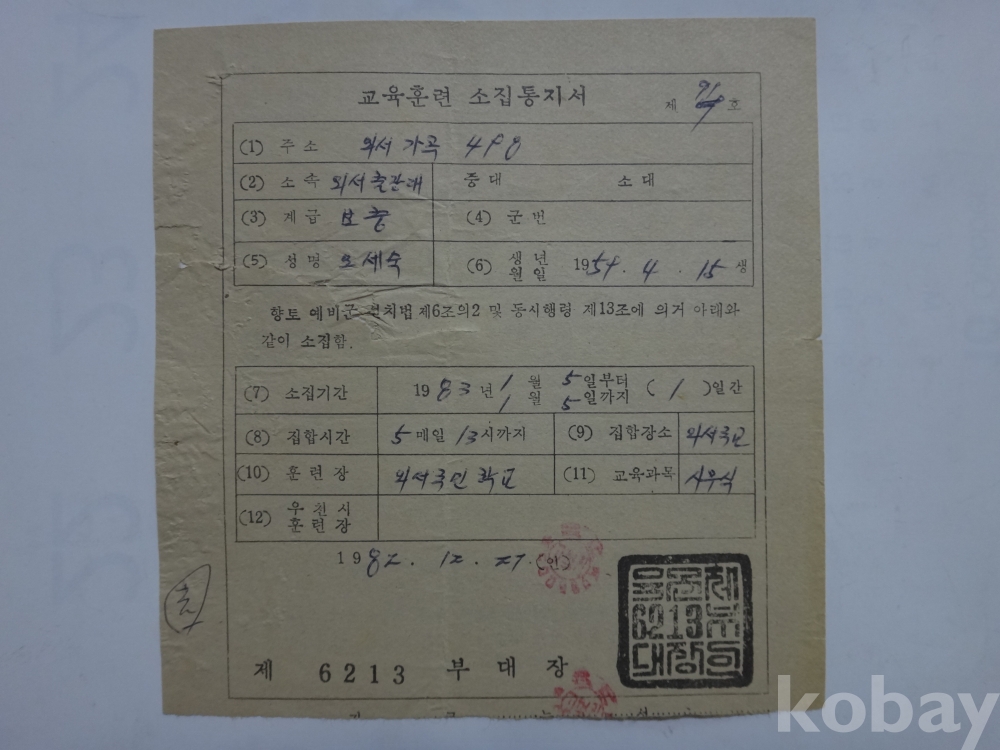 교육훈련 소집통지서
제 호
(1) 주소 외서 가곡 498
(2) 소속 외서 출관대 중대 소대
(3) 계급 보충 (4) 군번
(5) 성명 오세숙 (6) 생년월일 1954. 4. 15 생
향토 예비군 설치법 제6조의2 및 동시행령 제13조에 의거 아래와
같이 소집함.
(7) 소집기간 1983년 1월 5일부터 1월 5일까지 (1)일간
(8) 집합시간 5 매일 13시까지 (9) 집합장소 외서국교
(10) 훈련장 외서국민학교 (11) 교육과목 시무식
(12) 우천시 훈련장
1982. 12. 27. (인)
제 6213 부대장
6213
kobay